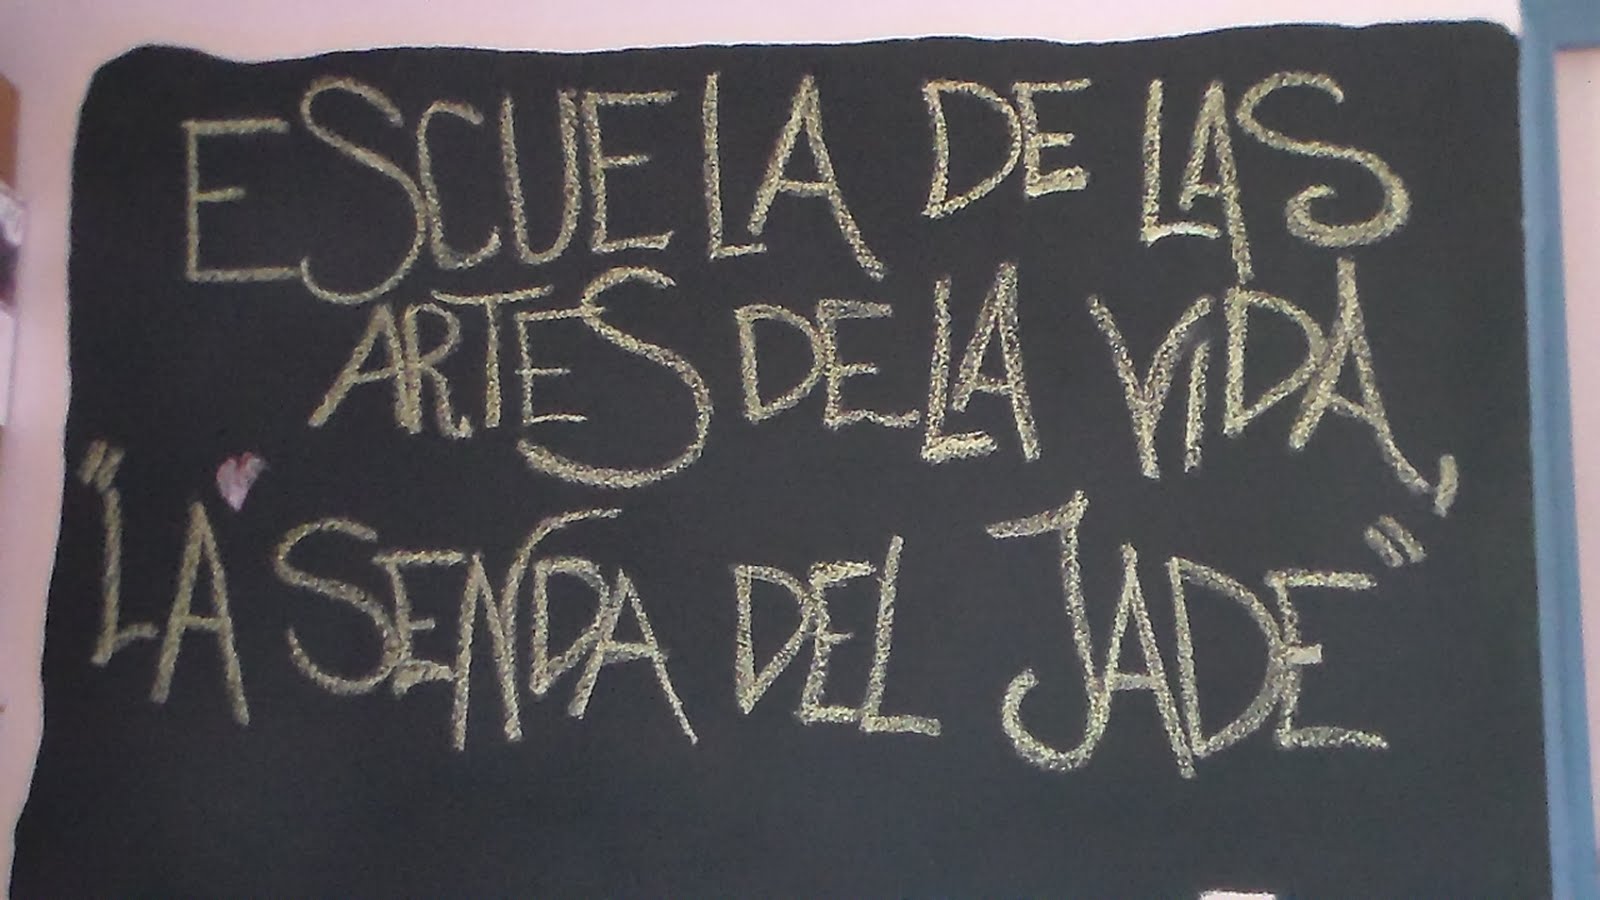 ESCUELA DE LAS
ARTES DE LA VIDA,
"LA SENDA DEL JADE"